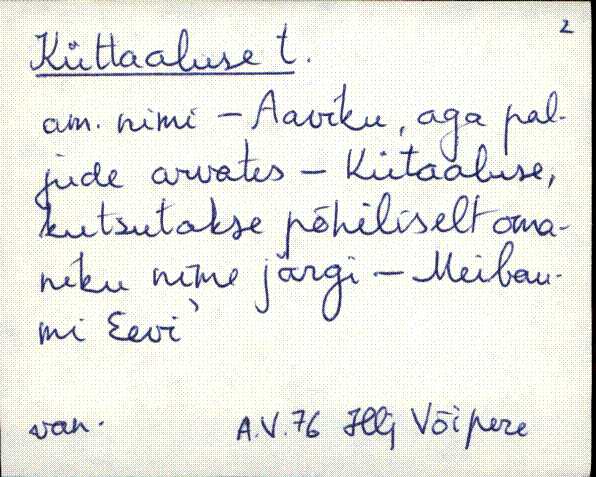 2
Küttaaluse t.
am. nimi – Aaviku, aga pal-
jude arvates – Kütaaluse,
kutsutakse põhiliselt oma-
niku nime järgi – Meibau-
mi Eevi`
van. A.V.76 Hlj Võipere